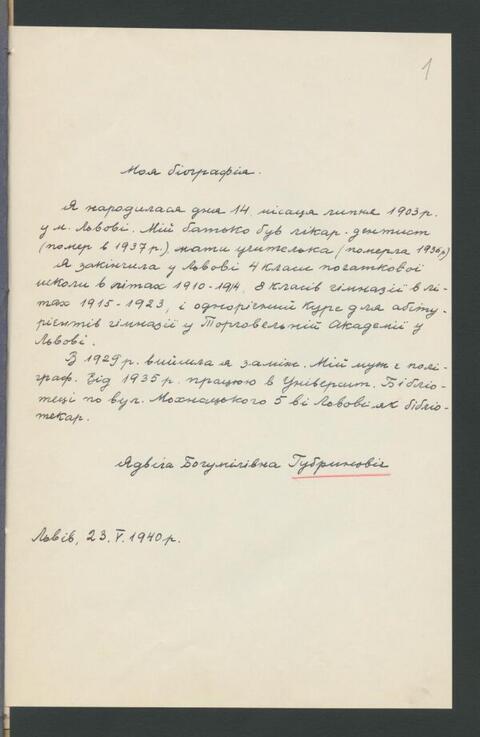 1
Моя біографія.
Я народилася дня 14 місяця липня 1903 р.
у м. Львові. Мій батько був лікар-дентист
(помер в 1937 р.), мати учителька (померла 1936 р.)
Я закінчила у Львові 4 класи початкової
школи в літах 1910-1914, 8 класів гімназії в лі-
тах 1915-1923, і однорічний курс для абіту-
рієнтів гімназії у Торговельній Академії у
Львові.
В 1929 р. вийшла я замін. Мій муж є полі-
граф. Від 1935 р. працюю в Університ. Бібліо-
теці по вул. Мохнацького 5 ві Львові як бібліо-
текар.
Ядвіга Богумілівна Губринович
Львів, 23. V. 1940 р.